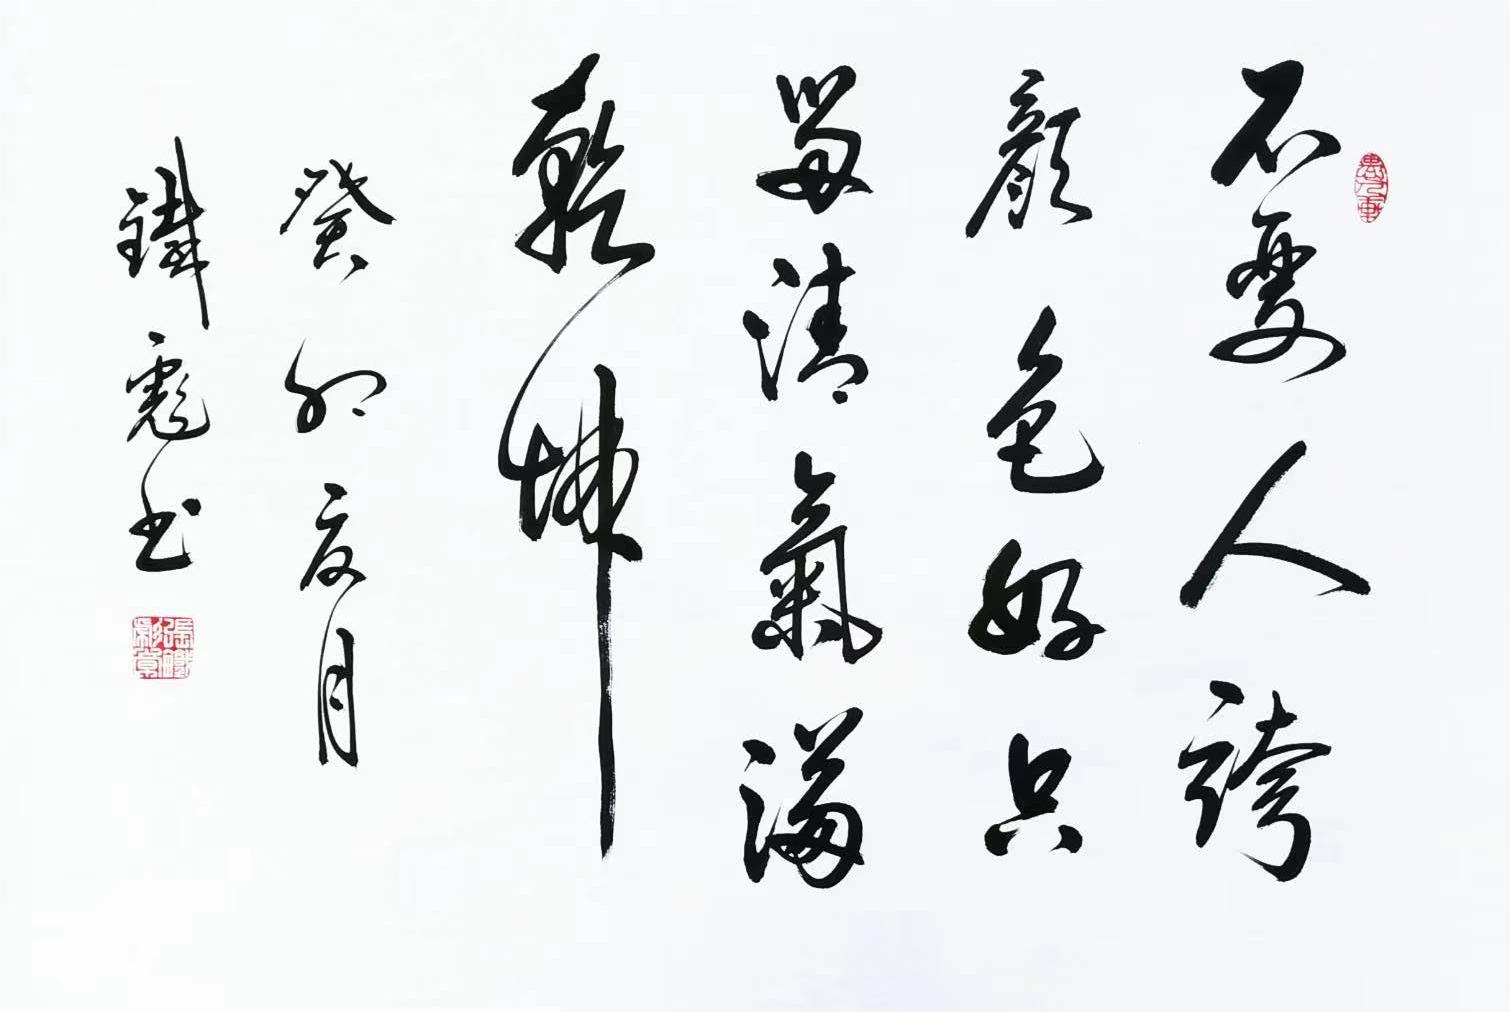 不要人誇
顏色好只
留清氣滿
乾坤
癸卯夏月
鐵彪書